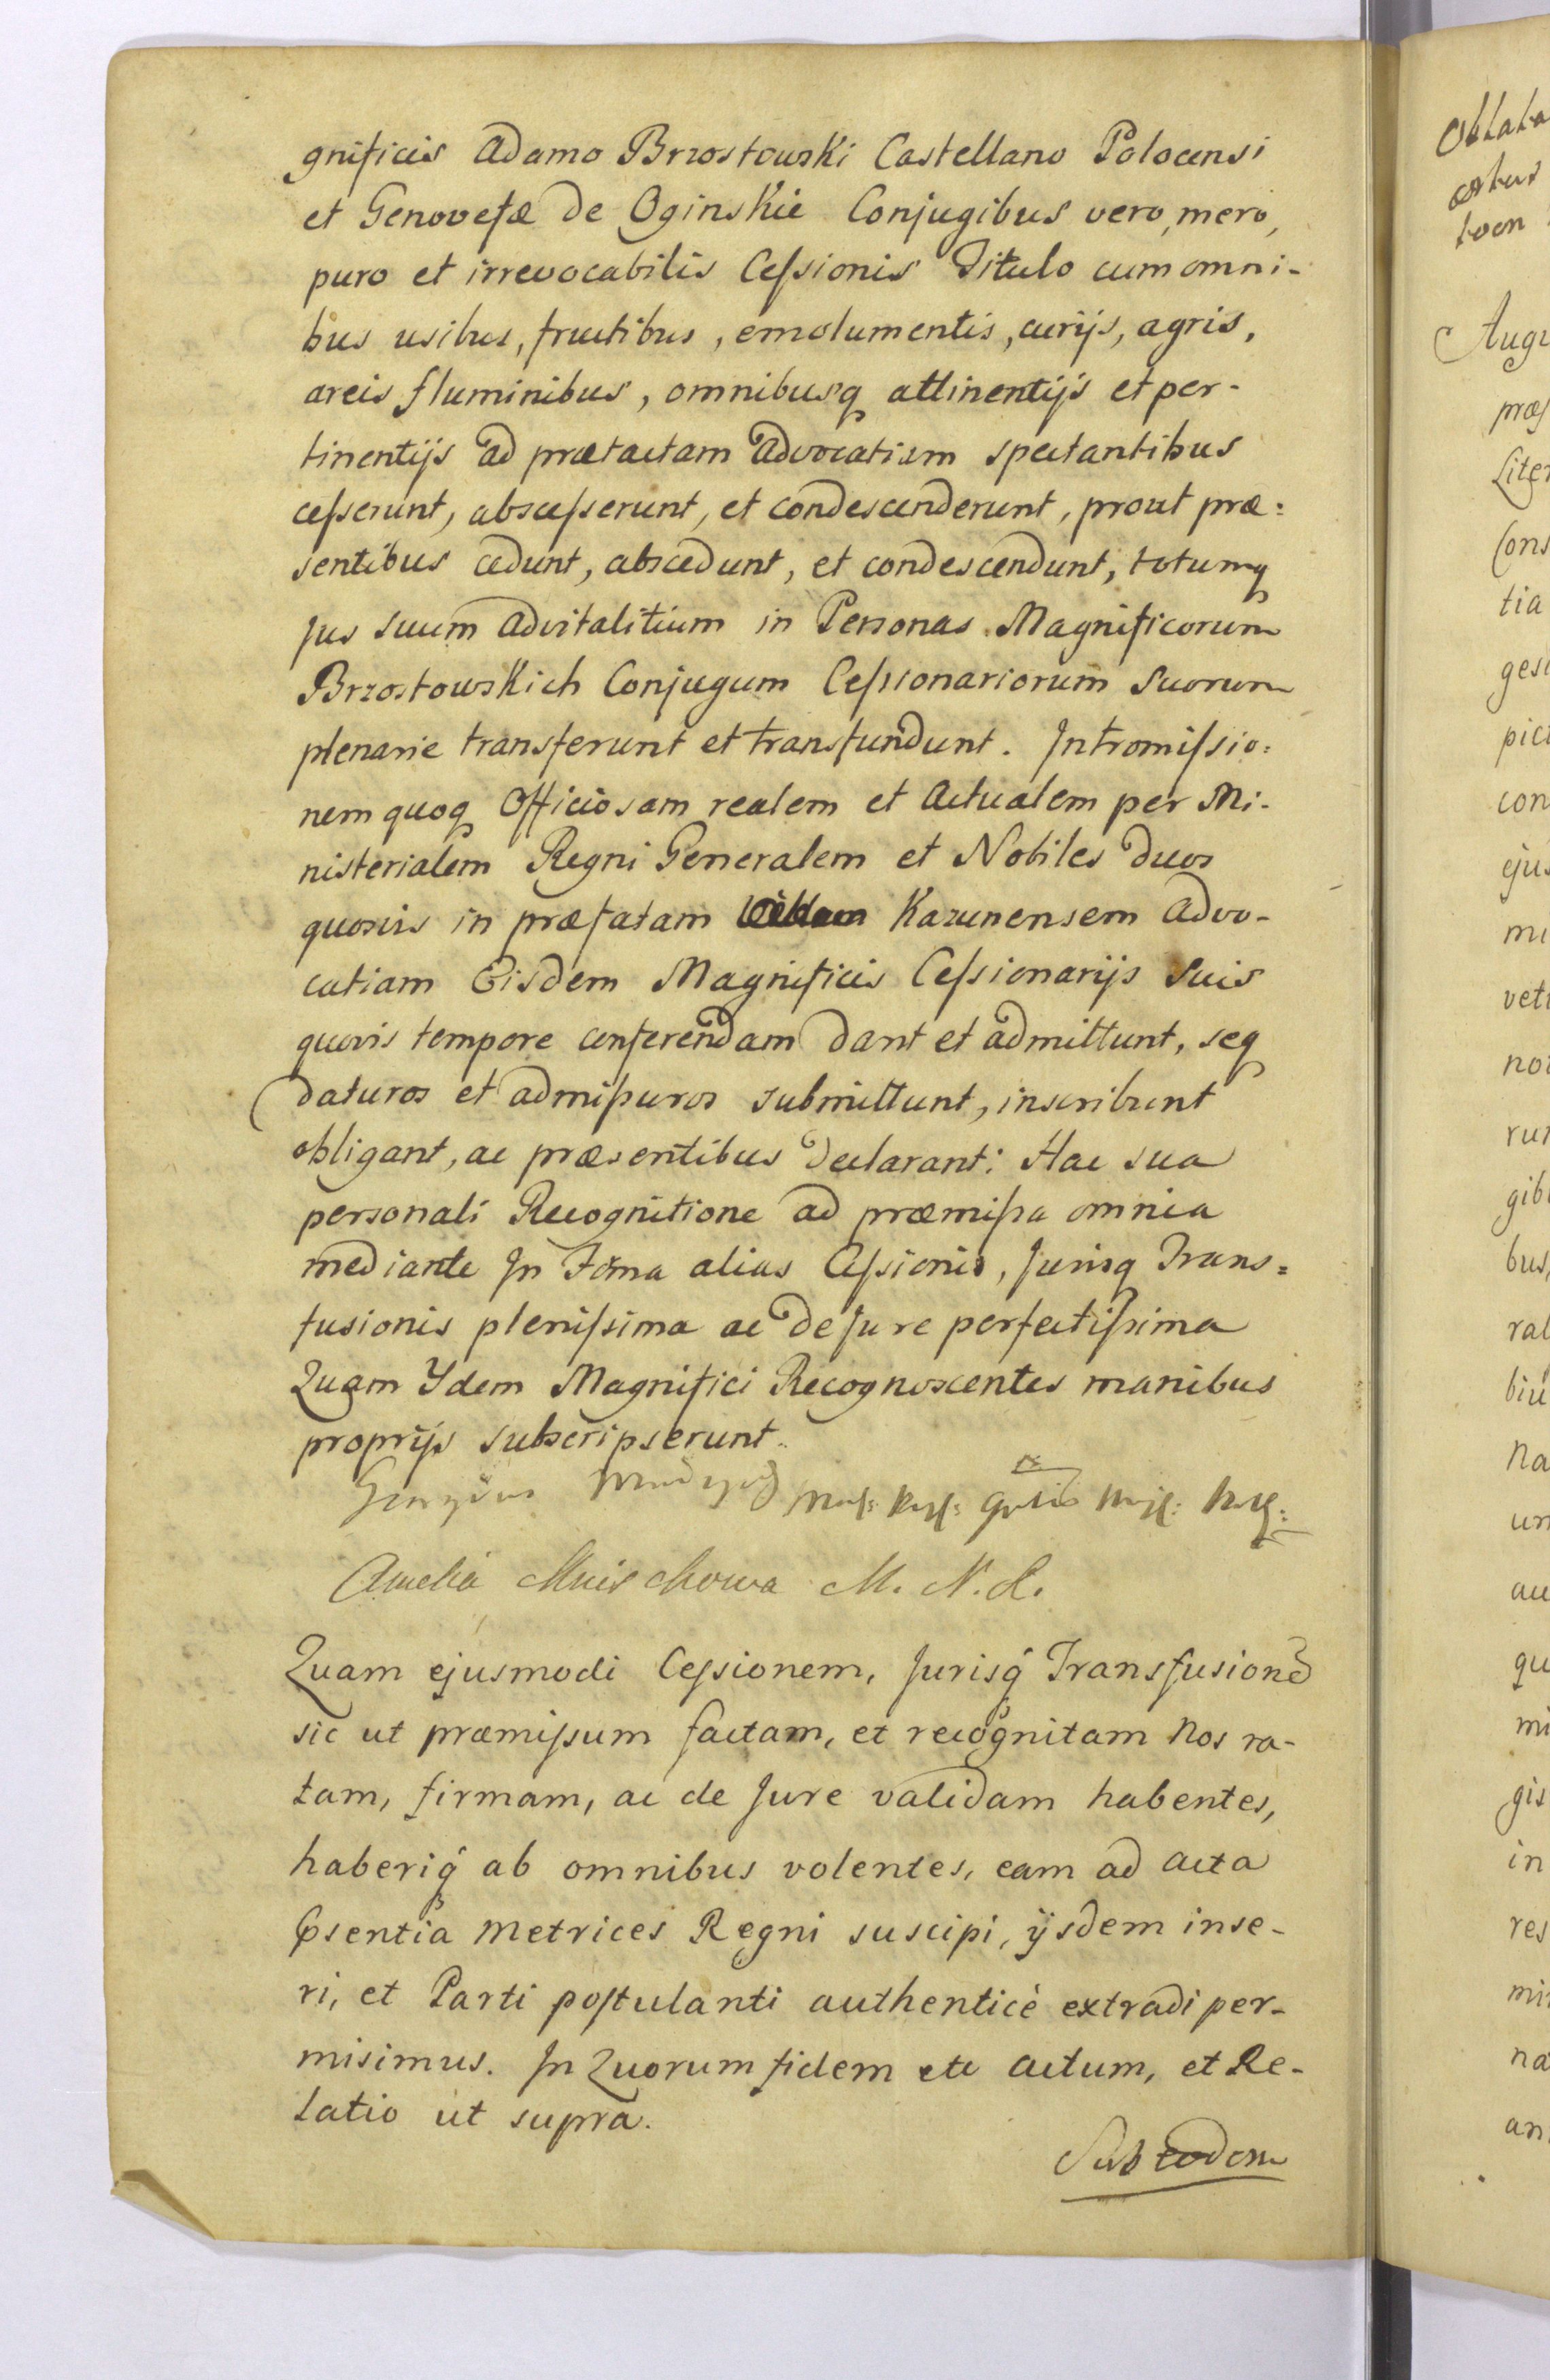 gnificis Adamo Brzostowski Castellano Polocensi
et Genovefæ de Oginskie Conjugibus vero, mero,
puro et irrevocabilis Cessionis Titulo cum omni-
bus usibus, fructibus, emolumentis, curijs, agris,
areis fluminibus, omnibusq attinentijs et per-
tinentijs ad prætactam Advocatiam spectantibus
cesserunt, abscesserunt, et condescenderunt, prout præ:
sentibus cedunt, abscedunt, et condescendunt, totumq
Jus suum advitalitium in Personas Magnificorum
Brzostowskich Conjugum Cessionariorum Suorum
plenarie transferunt et transfundunt. Intromissio:
nem quoq Officiosam realem et Actualem per Mi-
nisterialem Regni Generalem et Nobiles duos
quosvis in præfatam Kazunensem Advo-
catiam Eisdem Magnificis Cessionarijs Suis
quovis tempore conferendam dant et admittunt, seq
daturos et admissuros submittunt, inscribunt
obligant, ac præsentibus declarant: Hac sua
personali Recognitione ad præmissa omnia
mediante In Foma alias Cessionis, Jurisq Trans=
fusionis plenissima ac de Jure perfectissima
Quam Ydem Magnifici Recognoscentes manibus
proprijs subscripserunt.
Amelia Mnischowa M. N. L.
Quam ejusmodi Cessionem, Jurisq Transfusione
sic ut præmissum factam, et recognitam Nos ra-
tam, firmam, ac de Jure validam habentes,
haberiq ab omnibus volentes, eam ad Acta
Psentia Metrices Regni suscipi, ijsdem inse-
ri, et Parti postulanti authenticè extradi per-
misimus. In Quorum fidem etc Actum, et Re-
latio ut supra.
Sub eodem
Oblata
Augu
præs
Liter
Cons
tia
gesi
pici
con
ejus
mi
vet
not
run
gib
bus,
ral
biu
na
un
au
qu
mi
gis
in
res
min
na
an